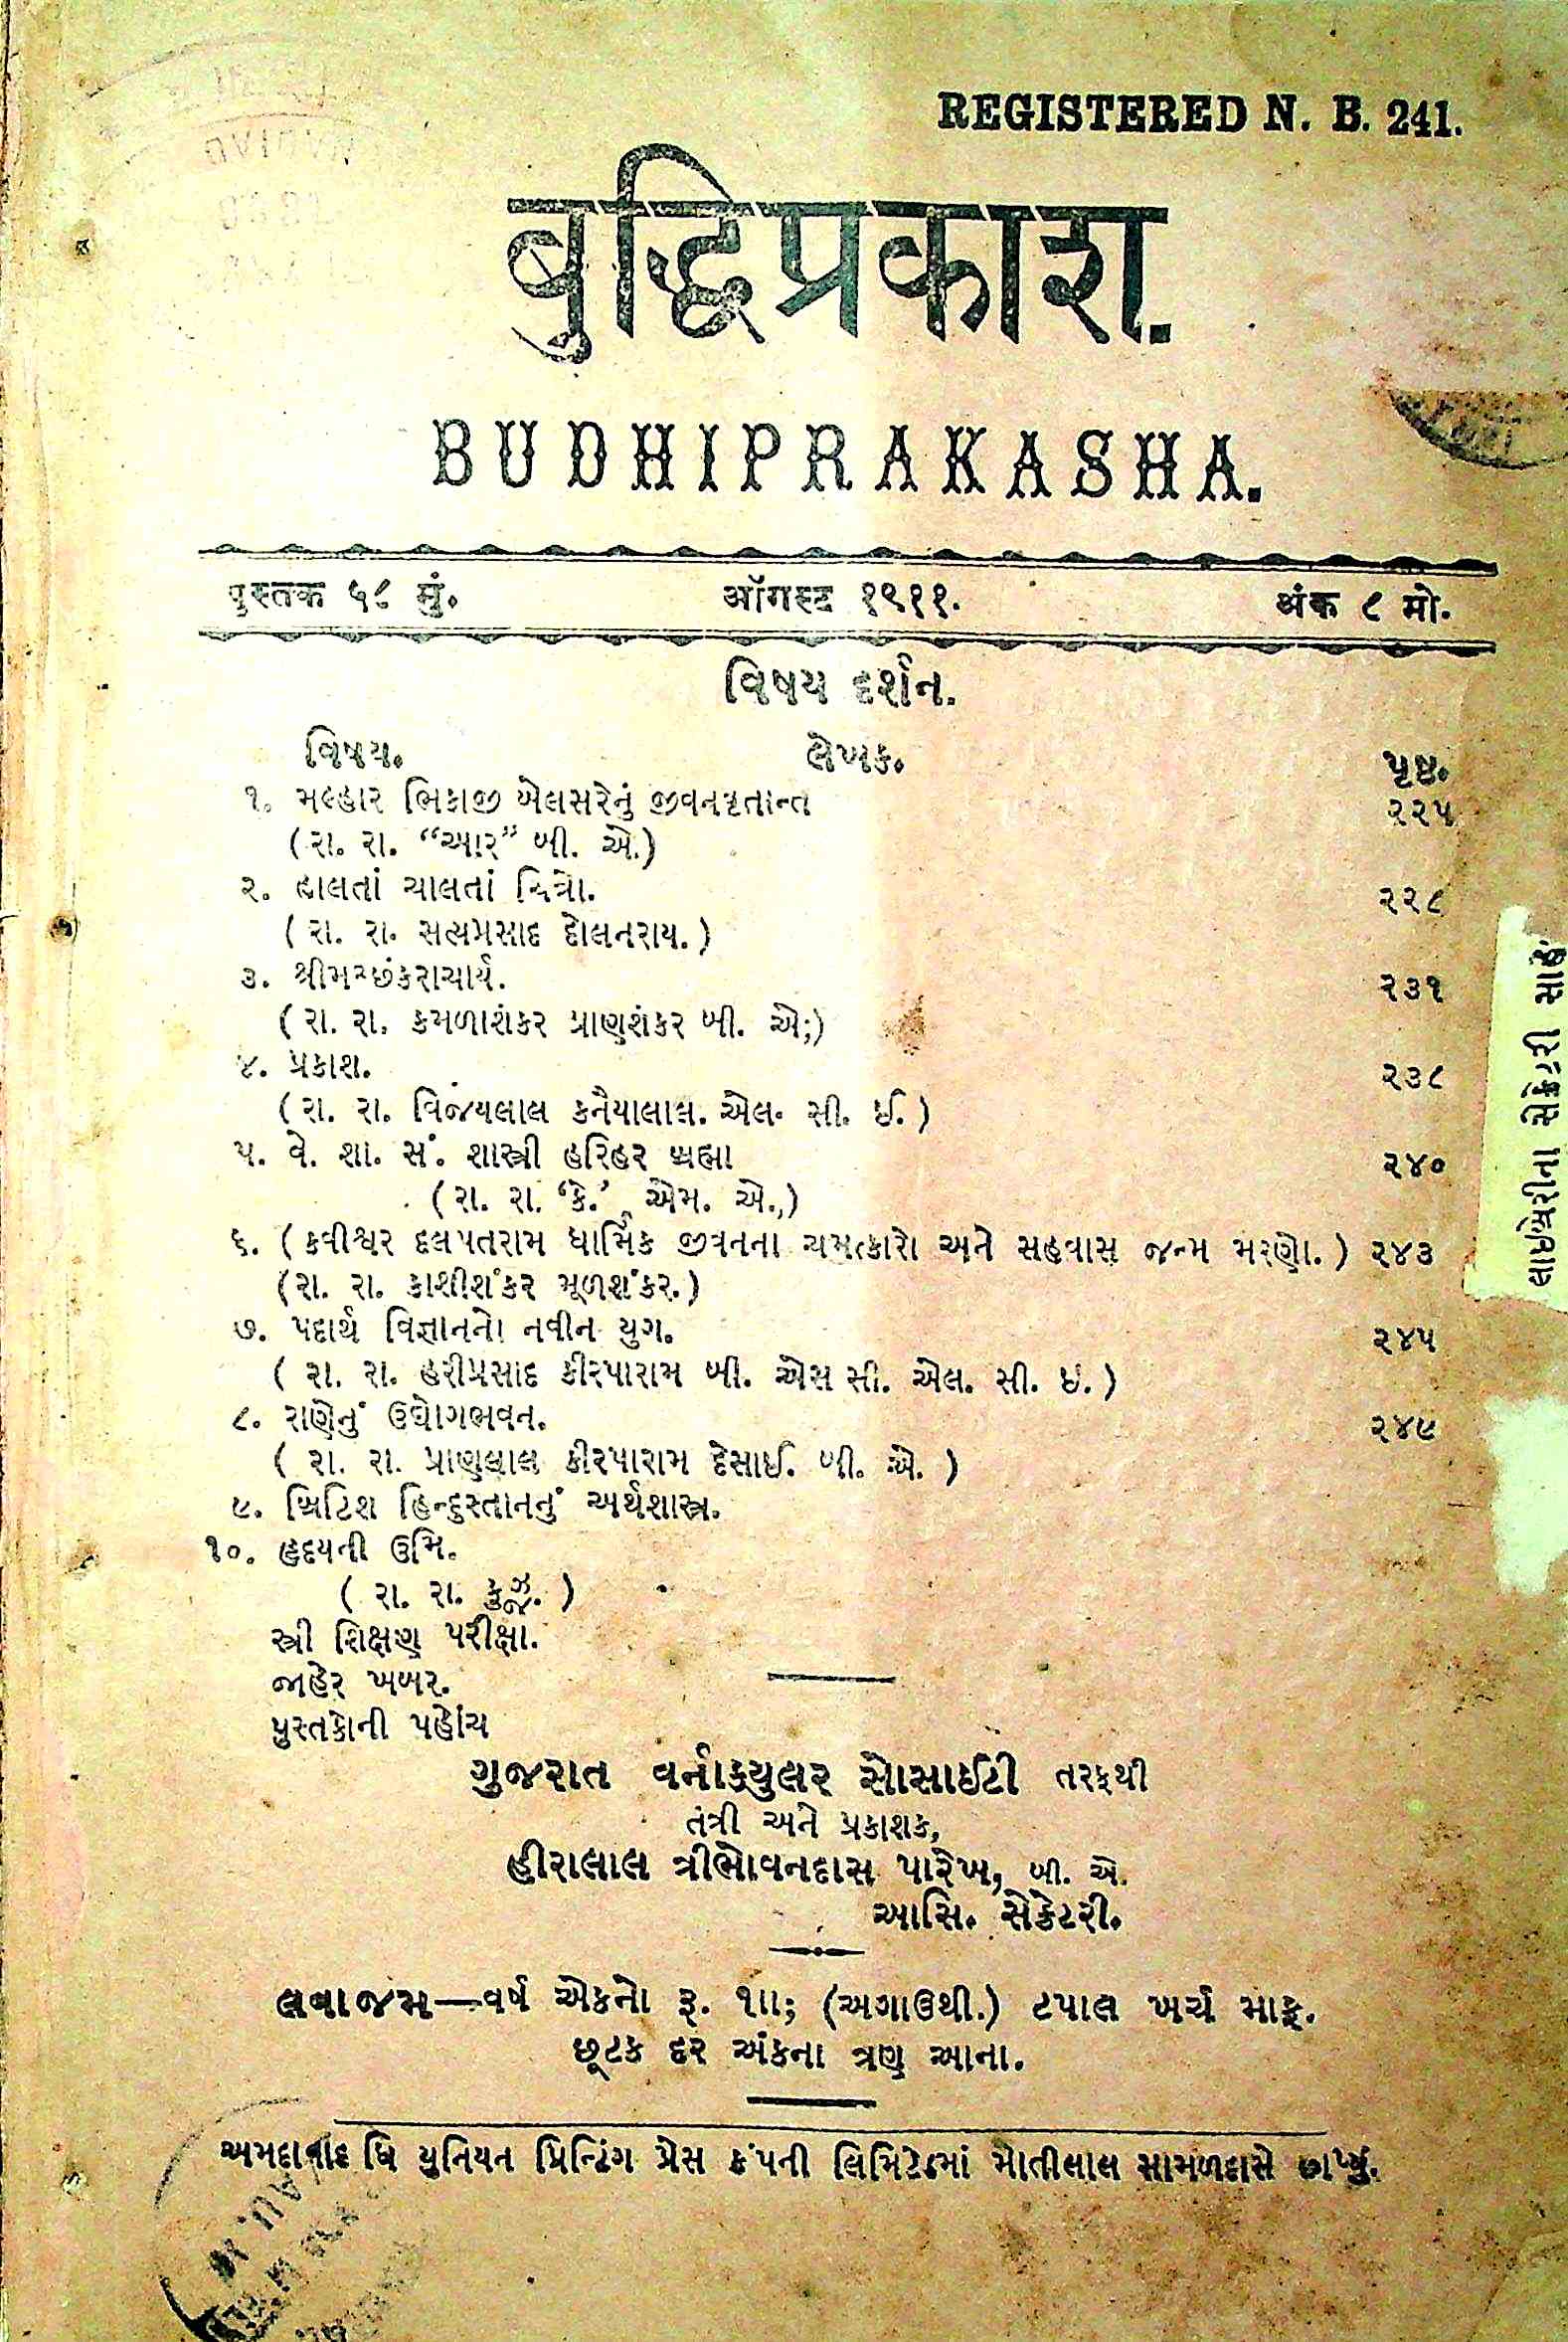 REGISTERED N. B. 241.
बुद्धिप्रकाश.
BUDHIPRAKASHA.
पुस्तक ५८ मुं. ऑगस्ट १९११. अंक ८ मो.
વિષય દર્શન.
વિષય. લેખક. પૃષ્ઠ.
૧. મલ્હાર ભિકાજી બેલસરેનું જીવનવૃતાન્ત ૨૨૫
(રા. રા. “આર” બી. એ.)
૨. હાલતાં ચાલતાં ચિત્રો. ૨૨૮
( રા. રા. સત્યપ્રસાદ દોલતરાય. )
૩. શ્રીમચ્છંકરાચાર્ય. ૨૩૧
( રા. રા. કમળાશંકર પ્રાણશંકર બી. એ;)
૪. પ્રકાશ. ૨૩૮
(રા. રા. વિજયલાલ કનૈયાલાલ. એલ. સી. ઈ. )
૫. વે. શા. સં. શાસ્ત્રી હરિહર બ્રહ્મા ૨૪૦
( રા. રા. ‘કે.’ એમ. એ.,)
૬. ( કવીશ્વર દલપતરામ ધાર્મિક જીવનના ચમત્કારો અને સહવાસ જન્મ મરણો. ) ૨૪૩
(રા. રા. કાશીશંકર મૂળશંકર.)
૭. પદાર્થ વિજ્ઞાનનો નવીન યુગ. ૨૪૫
( રા. રા. હરીપ્રસાદ કીરપારામ બી. એસ સી. એલ. સી. ઇ. )
૮. રાણેનું ઉદ્યોગભવન. ૨૪૯
( રા. રા. પ્રાણલાલ કીરપારામ દેસાઈ. બી. એ. )
૯. બ્રિટિશ હિન્દુસ્તાનનું અર્થશાસ્ત્ર.
૧૦. હૃદયની ઉર્મિ.
( રા. રા. )
સ્ત્રી શિક્ષણ પરીક્ષા.
જાહેર ખબર.
પુસ્તકોની પહોંચ
ગુજરાત વર્નાક્યુલર સોસાઈટી તરફથી
તંત્રી અને પ્રકાશક,
હીરાલાલ ત્રીભોવનદાસ પારેખ, બી. એ.
આસિ. સેક્રેટરી.
લવાજમ—વર્ષ એકનો રૂ. ૧ાા; (અગાઉથી.) ટપાલ ખર્ચ માફ.
છૂટક દર અંકના ત્રણ આના.
અમદાવાદ ધિ યુનિયન પ્રિન્ટિંગ પ્રેસ કંપની લિમિટેડમાં મોતીલાલ સામળદાસે છાપ્યું.
લાઇબ્રેરીના સેક્રેટરી